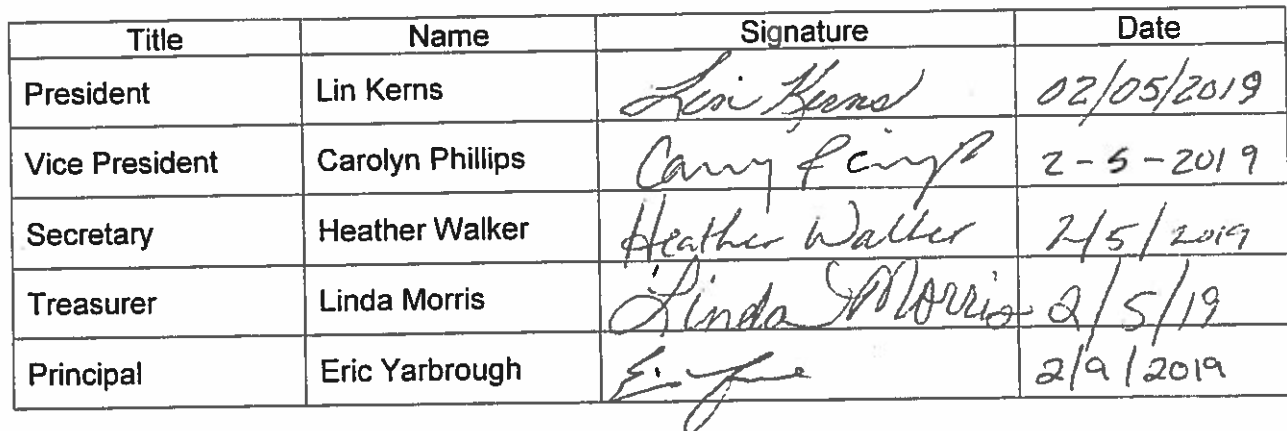 Title Name Signature Date
President Lin Kerns Lin Kerns 02/05/2019
Vice President Carolyn Phillips 2-5-2019
Secretary Heather Walker Heather Walker 2/5/2019
Treasurer Linda Morris Linda Morris 2/5/19
Principal Eric Yarbrough 2/9/2019